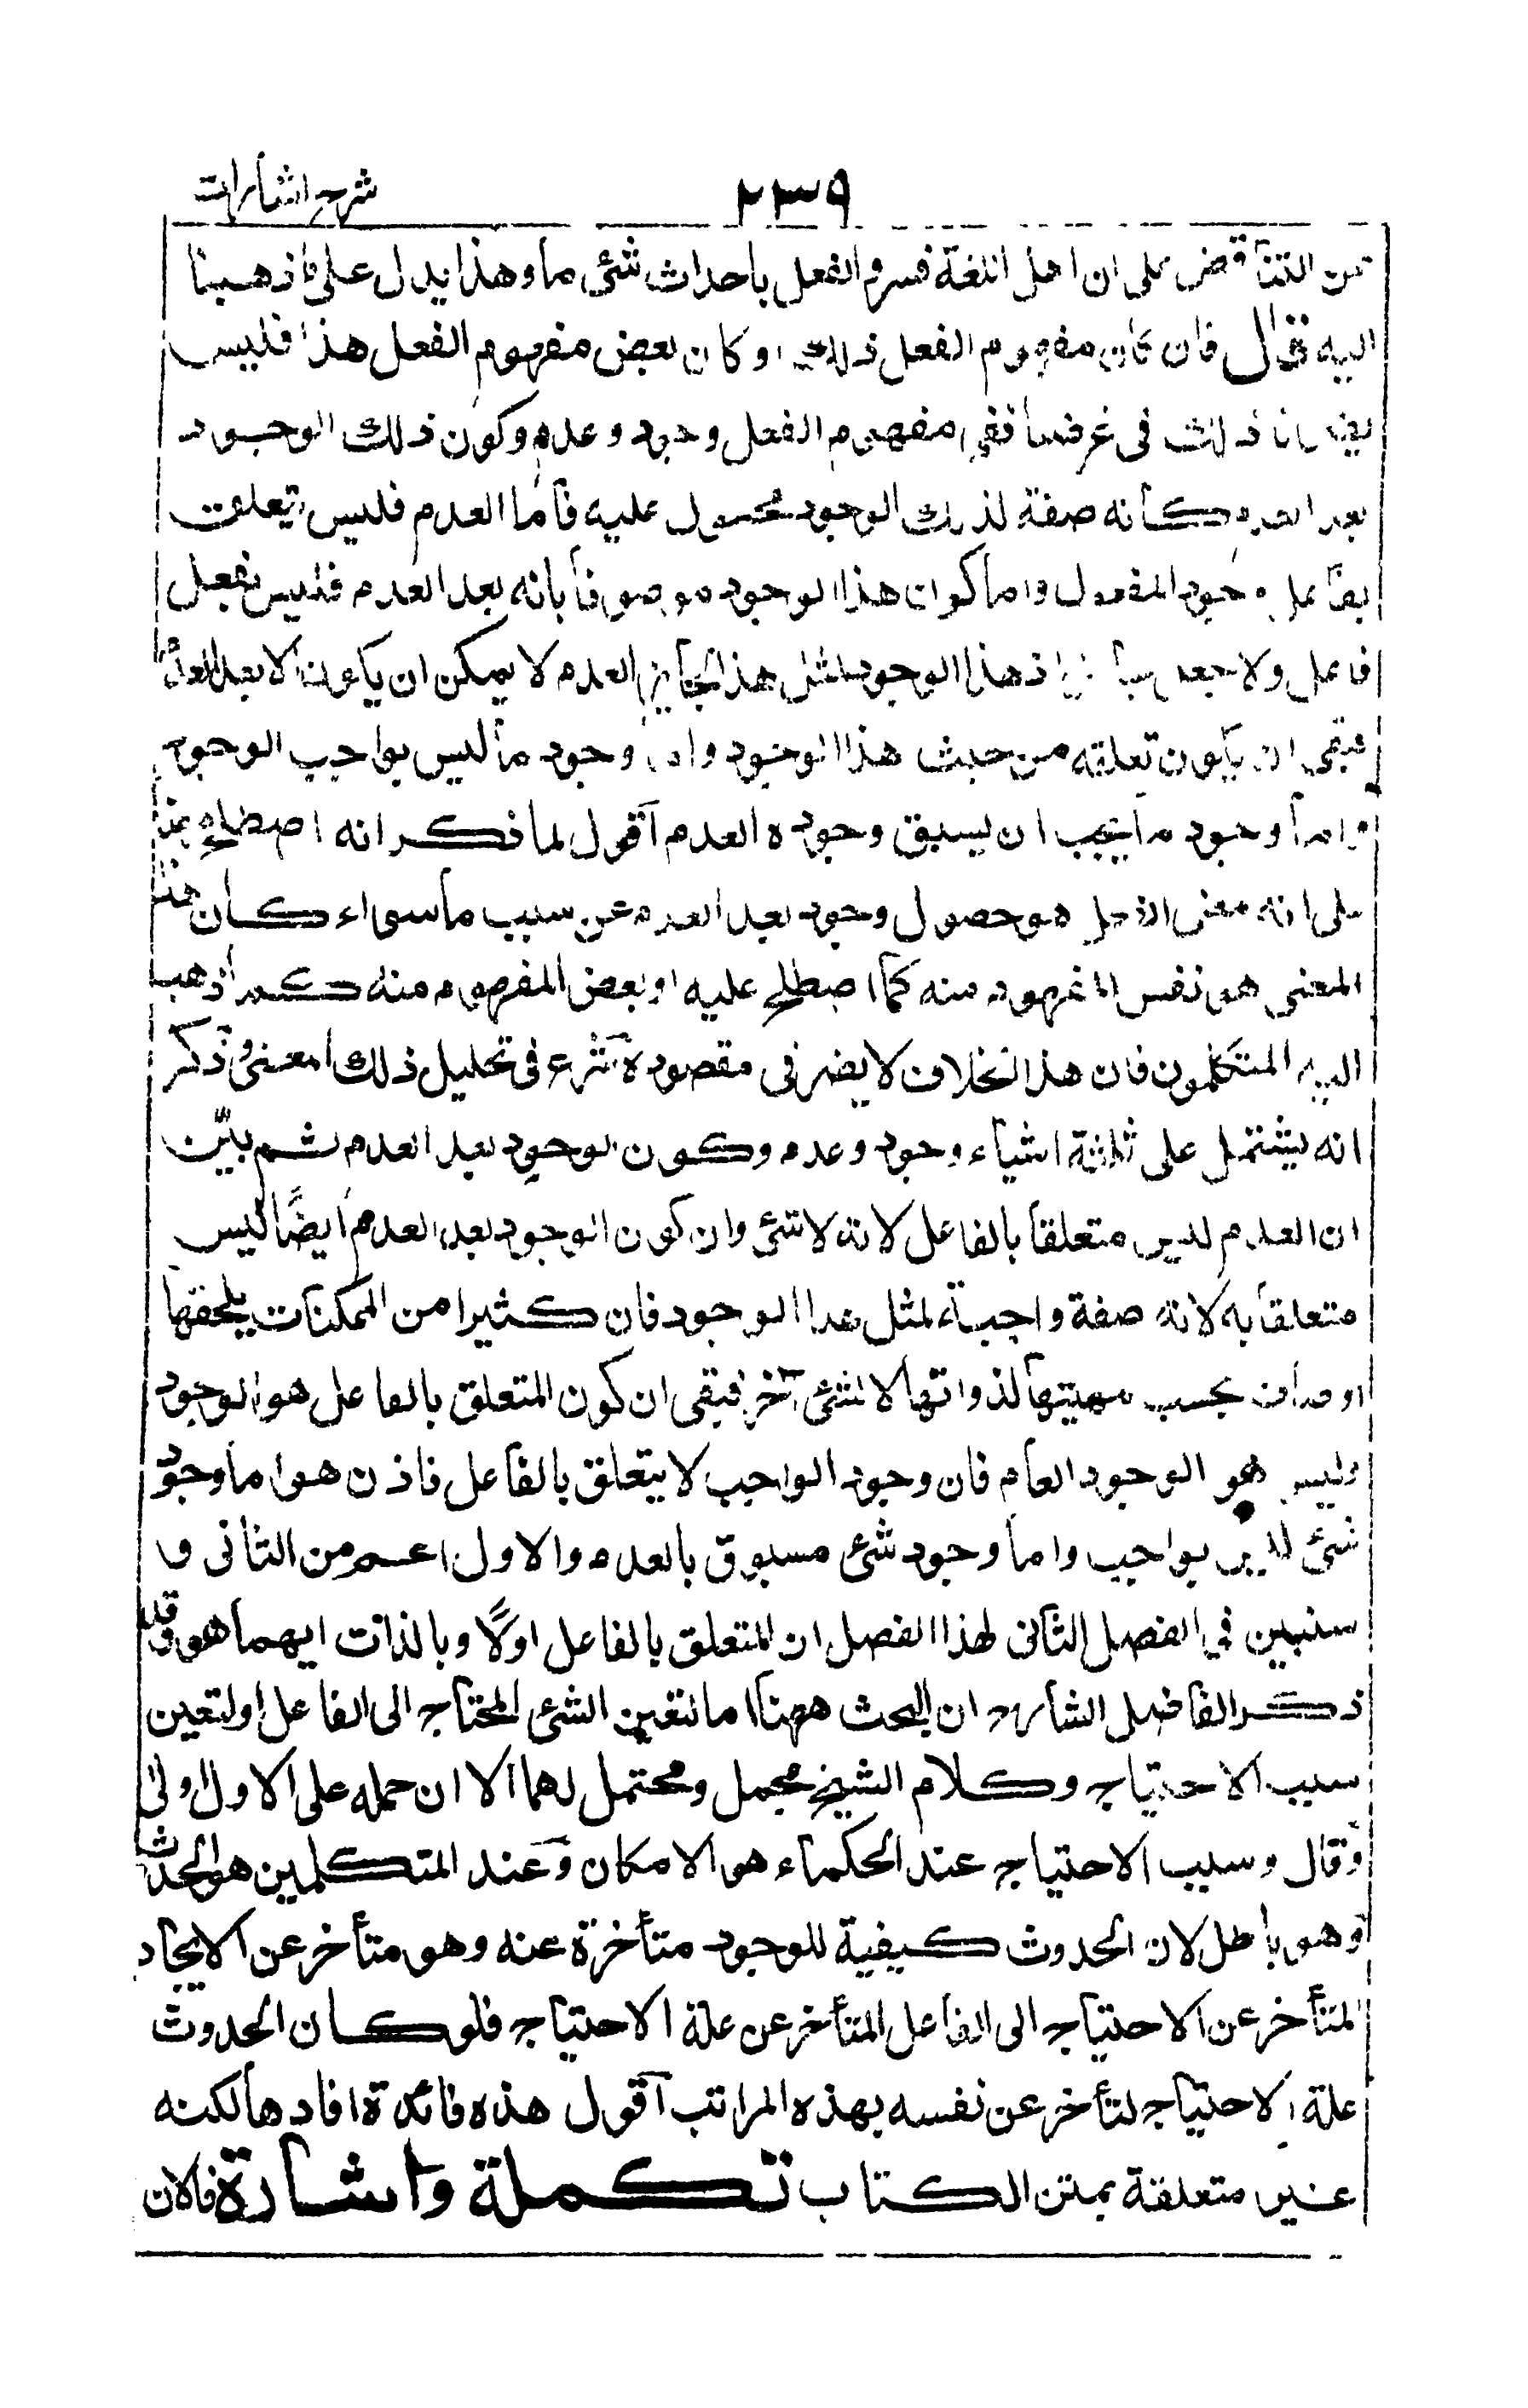 ٢٣٩ شرح اشارات
من التناقض على ان اهل اللغة فسروا الفعل باحداث شئ ما وهذا يدل على ما ذهبنا
اليه قال فان كان مفهوم الفعل ذلك او كان بعض مفهوم الفعل هذا فليس
يضرنا ذلك فى غرضنا ففى مفهوم الفعل وجود وعدم وكون ذلك الوجود
بعد العدم كأنه صفة لذلك الوجود محمول عليه فأما العدم فليس يتعلق
بفاعل وجود المفعول واما كون هذا الوجود موصوفا بانه بعد العدم فليس بفعل
فاعل ولا جعل جاعل اذ هذا الوجود لمثل هذا الجايز العدم لا يمكن ان يكون الا بعد العدم
فبقى ان يكون تعلقه من حيث هذا الوجود واما وجود ما ليس بواجب الوجود
واما وجود ما يجب ان يسبق وجوده العدم اقول لما ذكر انه اصطلح
على انه معنى الفعل هو حصول وجود بعد العدم عن سبب ما سواء كان هذا
المعنى هو نفس المفهوم منه كما اصطلح عليه او بعض المفهوم منه كما ذهب
اليه المتكلمون فان هذا الخلاف لا يضر فى مقصوده شرع فى تحليل ذلك المعنى وذكر
انه يشتمل على ثلثة اشياء وجود وعدم وكون الوجود بعد العدم ثم بيّن
ان العدم ليس متعلقا بالفاعل لانه لا شئ وان كون الوجود بعد العدم ايضًا ليس
متعلقا به لانه صفة واجبة لمثل هذا الوجود فان كثيرا من الممكنات يلحقها
اوصاف بحسب مهيتها لذواتها لا لشئ آخر فبقى ان كون المتعلق بالفاعل هو الوجود
وليس هو الوجود العام فان وجود الواجب لا يتعلق بالفاعل فاذن هو اما وجود
شئ ليس بواجب واما وجود شئ مسبوق بالعدم والاول اعم من الثانى و
سنبين فى الفصل الثانى لهذا الفصل ان المتعلق بالفاعل اولًا وبالذات ايهما هو وقد
ذكر الفاضل الشارح ان البحث ههنا اما لتعين الشئ المحتاج الى الفاعل او لتعين
سبب الاحتياج وكلام الشيخ مجمل ومحتمل لهما الا ان حمله على الاول اولى
وقال وسبب الاحتياج عند الحكماء هو الامكان وعند المتكلمين هو الحدوث
وهو باطل لان الحدوث كيفية للوجود متأخرة عنه وهو متأخر عن الايجاد
المتأخر عن الاحتياج الى الفاعل المتأخر عن علة الاحتياج فلو كان الحدوث
علة الاحتياج لتأخر عن نفسه بهذه المراتب اقول هذه فائدة افادها لكنه
غير متعلقة بمتن الكتاب تكملة واشارة فالان